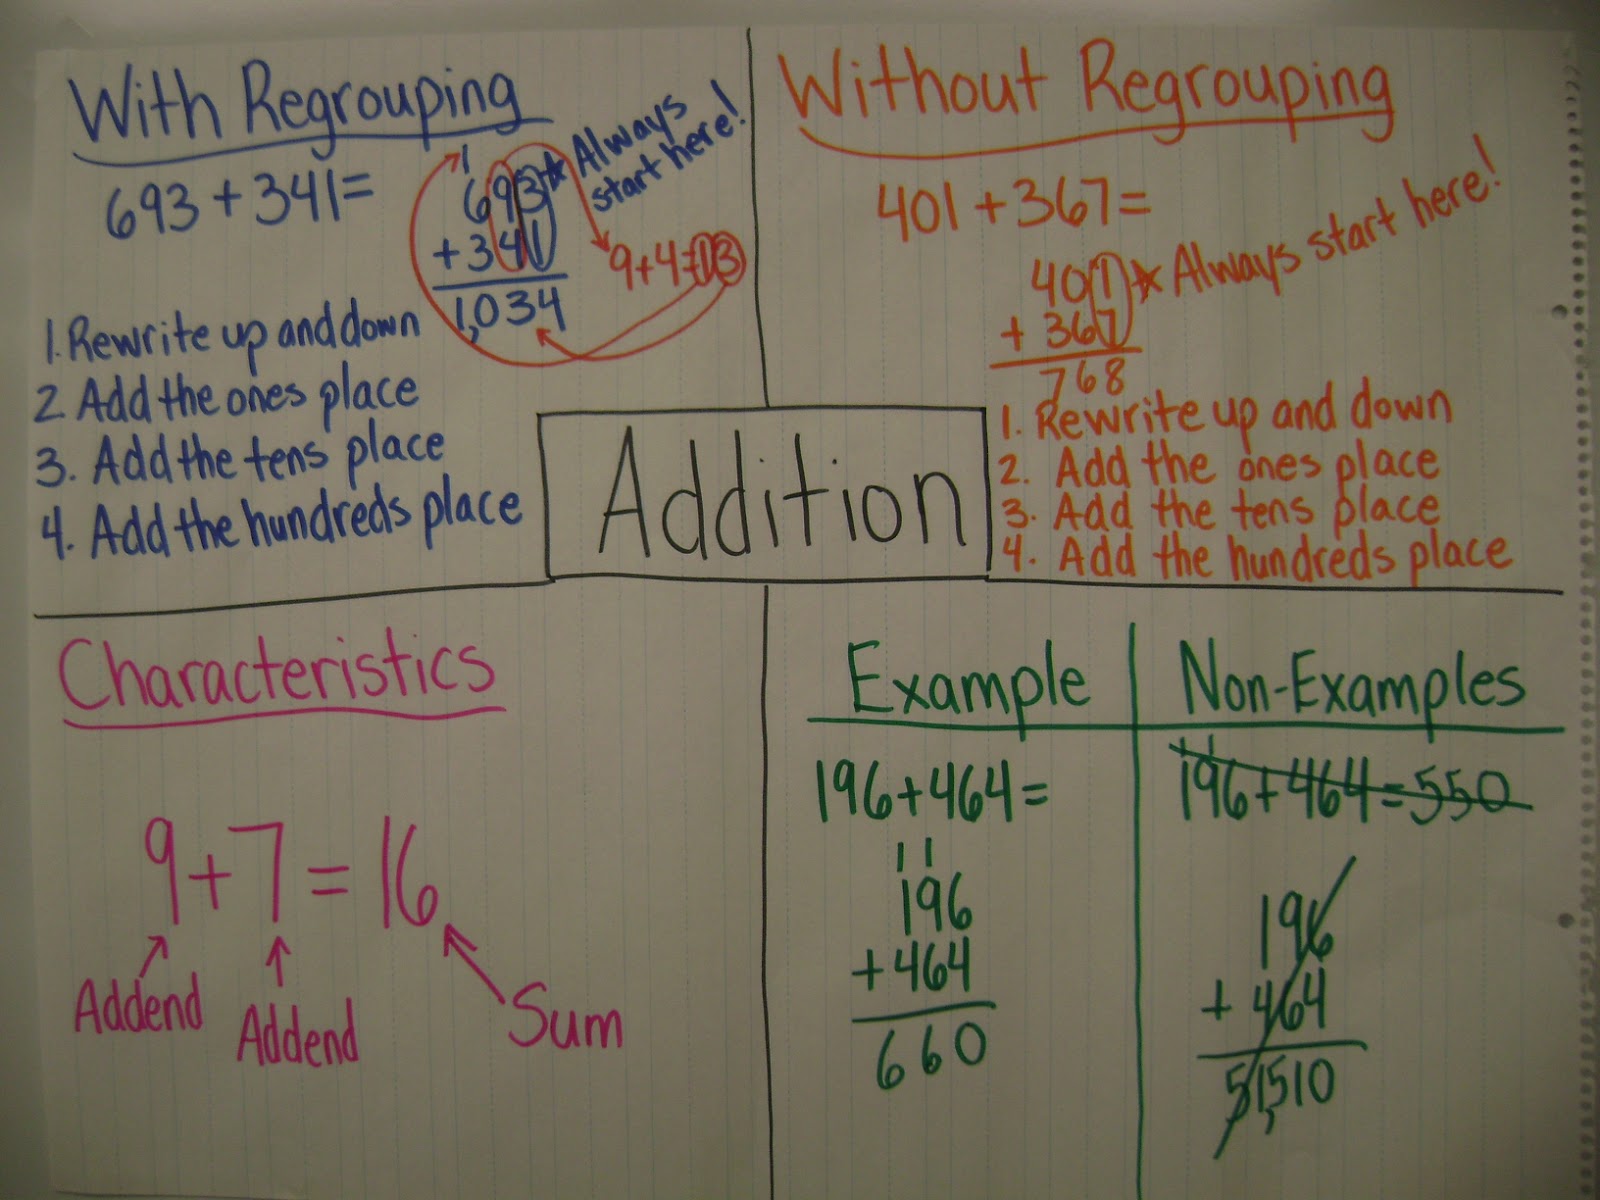 With Regrouping
693 + 341=
1
693
+ 341
1,034
* Always
start here!
9+4=13
1. Rewrite up and down
2 Add the ones place
3. Add the tens place
4. Add the hundreds place
Without Regrouping
401 + 367=
401
+ 367
768
* Always start here!
1. Rewrite up and down
2. Add the ones place
3. Add the tens place
4. Add the hundreds place
Addition
Characteristics
9+7=16
Addend
Addend
Sum
Example
196+464=
1 1
196
+464
660
Non-Examples
1 1
196+464=550
196
+ 464
51,510